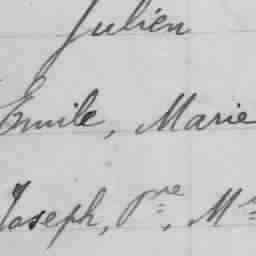 Julien
Emile, Marie
Joseph, Pre, M